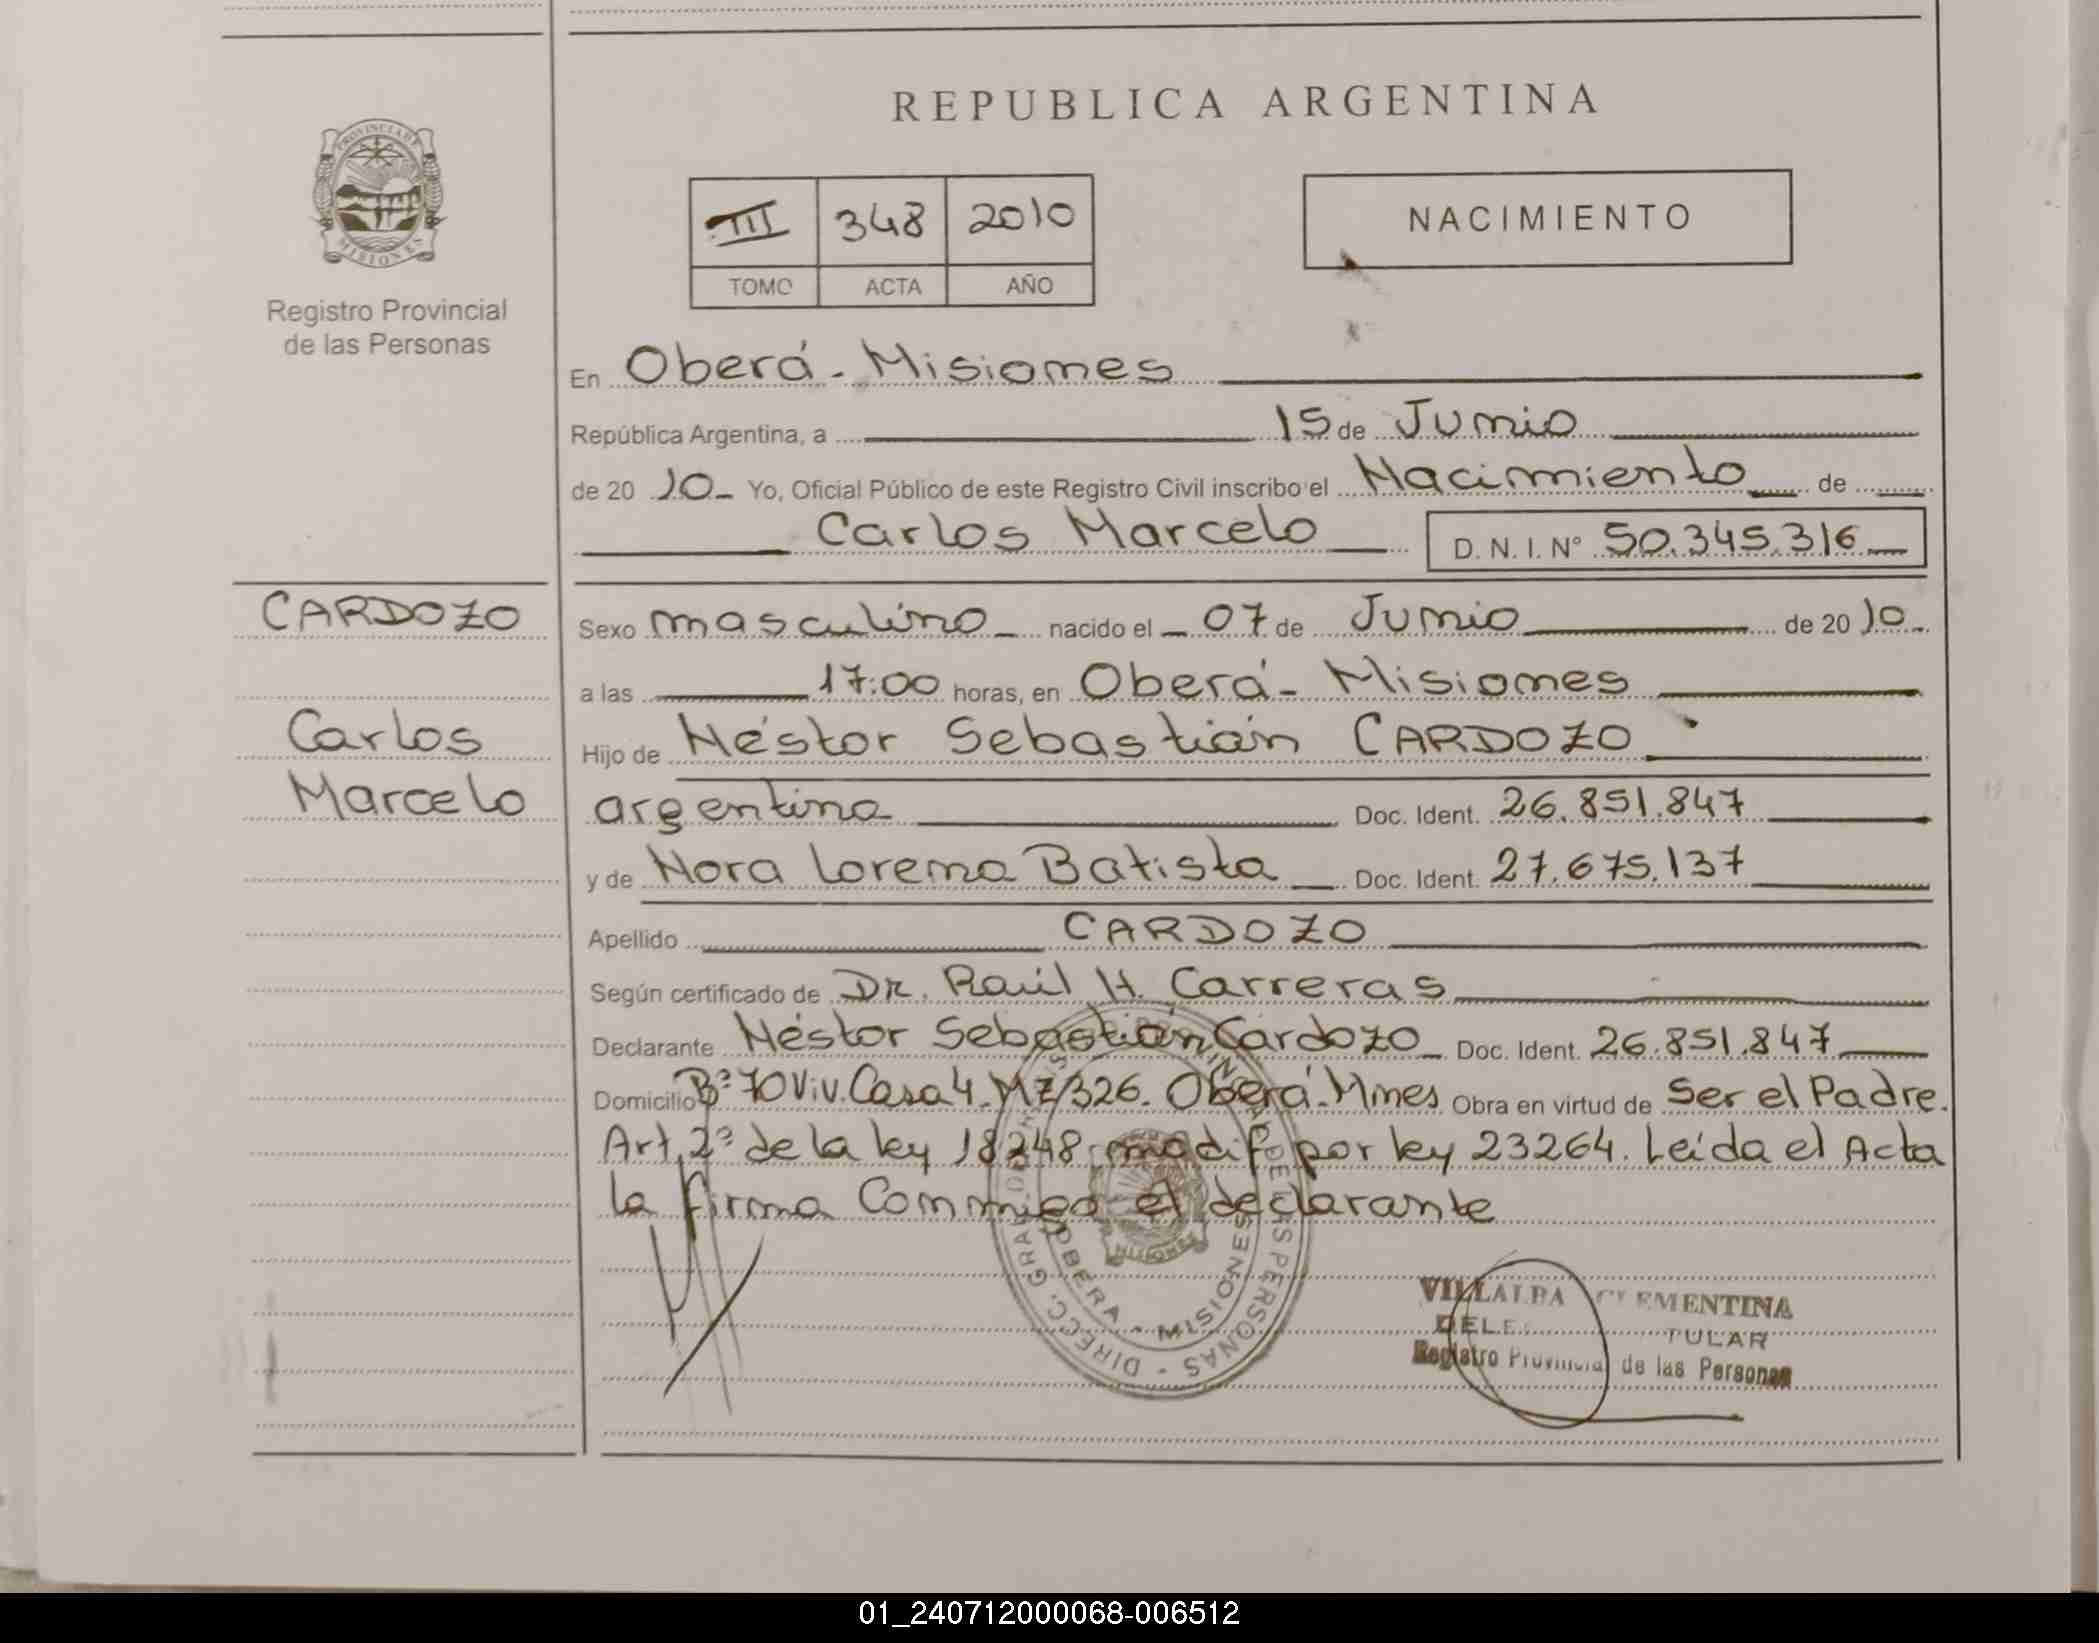 REPUBLICA ARGENTINA
PROVINCIA DE
MISIONES
Registro Provincial
de las Personas
III 348 2010
TOMO ACTA AÑO
NACIMIENTO
En Oberá - Misiones
República Argentina, a 15 de Junio
de 20 10 Yo, Oficial Público de este Registro Civil inscribo el Nacimiento de
Carlos Marcelo D. N. I. Nº 50.345.316
CARDOZO
Carlos
Marcelo
Sexo masculino nacido el 07 de Junio de 20 10
a las 17:00 horas, en Oberá - Misiones
Hijo de Néstor Sebastián CARDOZO
argentina Doc. Ident. 26.851.847
y de Nora Lorena Batista Doc. Ident. 27.675.137
Apellido CARDOZO
Según certificado de DR. Raúl H. Carreras
Declarante Néstor Sebastián Cardozo Doc. Ident. 26.851.847
Domicilio Bº 70 Viv. Casa 4. MZ/326. Oberá. Mnes Obra en virtud de Ser el Padre.
Art. 2º de la ley 18248 modif por ley 23264. Leída el Acta
la firma Conmigo el declarante
DIRECC. GRAL. DE LAS PERSONAS
OBERA - MISIONES
MISIONES
VILLALBA CLEMENTINA
TULAR
Registro Provincial de las Personas
01_240712000068-006512